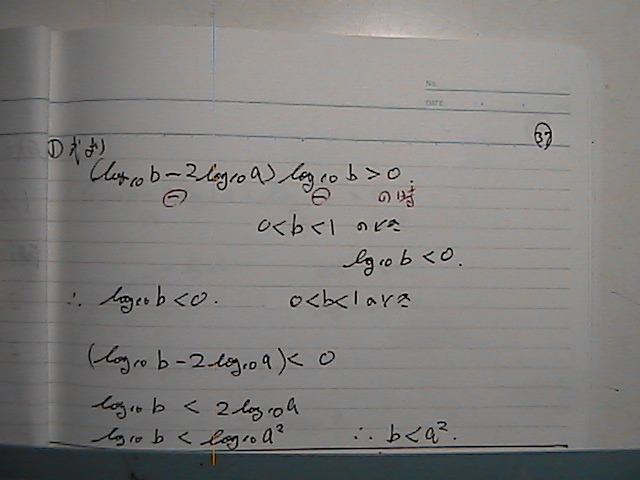 No.
DATE
㊲
①式より
(log₁₀ b − 2log₁₀ a) log₁₀ b > 0.
⊖ ⊖ の時
0 < b < 1 のとき
log₁₀ b < 0.
∴ log₁₀ b < 0. 0 < b < 1 のとき
(log₁₀ b − 2log₁₀ a) < 0
log₁₀ b < 2log₁₀ a
log₁₀ b < log₁₀ a² ∴ b < a².